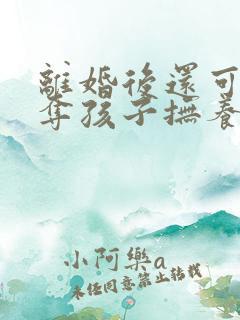 離婚後還可
奪孩子撫養
小阿樂a
未经同意禁止转载